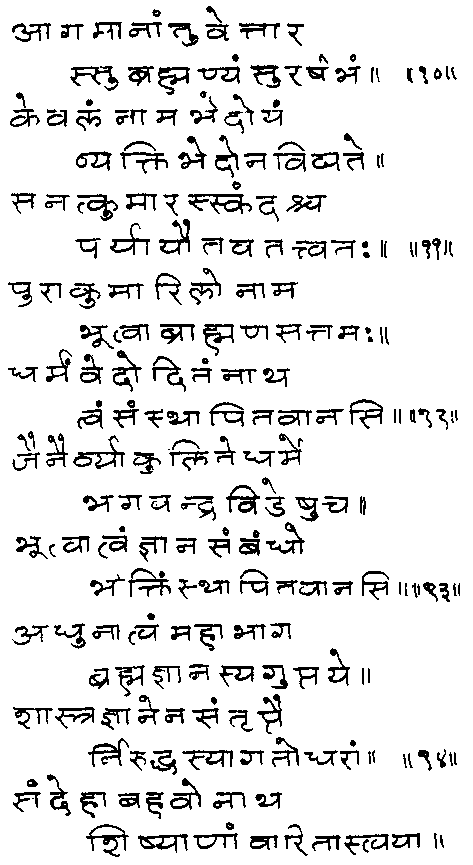 आगमानांतुवेत्तार
स्सुब्रह्मण्यंसुरर्षभं॥ ॥१०॥
केवलंनामभेदोयं
व्यक्तिभेदोनविद्यते॥
सनत्कुमारस्स्कंदश्च
पर्यायौतवतत्त्वतः॥ ॥११॥
पुराकुमारिलोनाम
भूत्वाब्राह्मणसत्तमः॥
धर्मंवेदोदितंनाथ
त्वंसंस्थापितवानसि॥॥१२॥
जैनैर्व्याकुलितेधर्मे
भगवन्द्रविडेषुच॥
भूत्वात्वंज्ञानसंबंधो
भक्तिंस्थापितवानसि॥॥१३॥
अधुनात्वंमहाभाग
ब्रह्मज्ञानस्यगुप्तये॥
शास्त्रज्ञानेनसंतृप्तै
र्निरुद्धस्यागतोधरां॥ ॥१४॥
संदेहाबहवोनाथ
शिष्याणांवारितास्त्वया॥